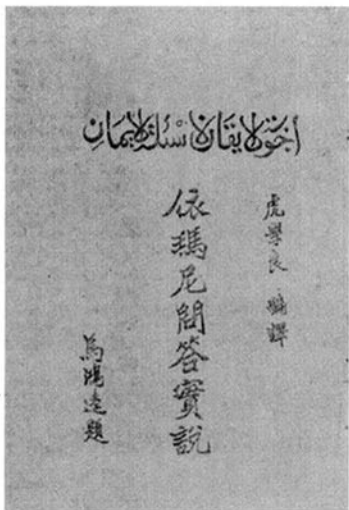 اجوبة الايقان لاسئلة الايمان
虎學良 編譯
依瑪尼問答實說
馬鴻逵題